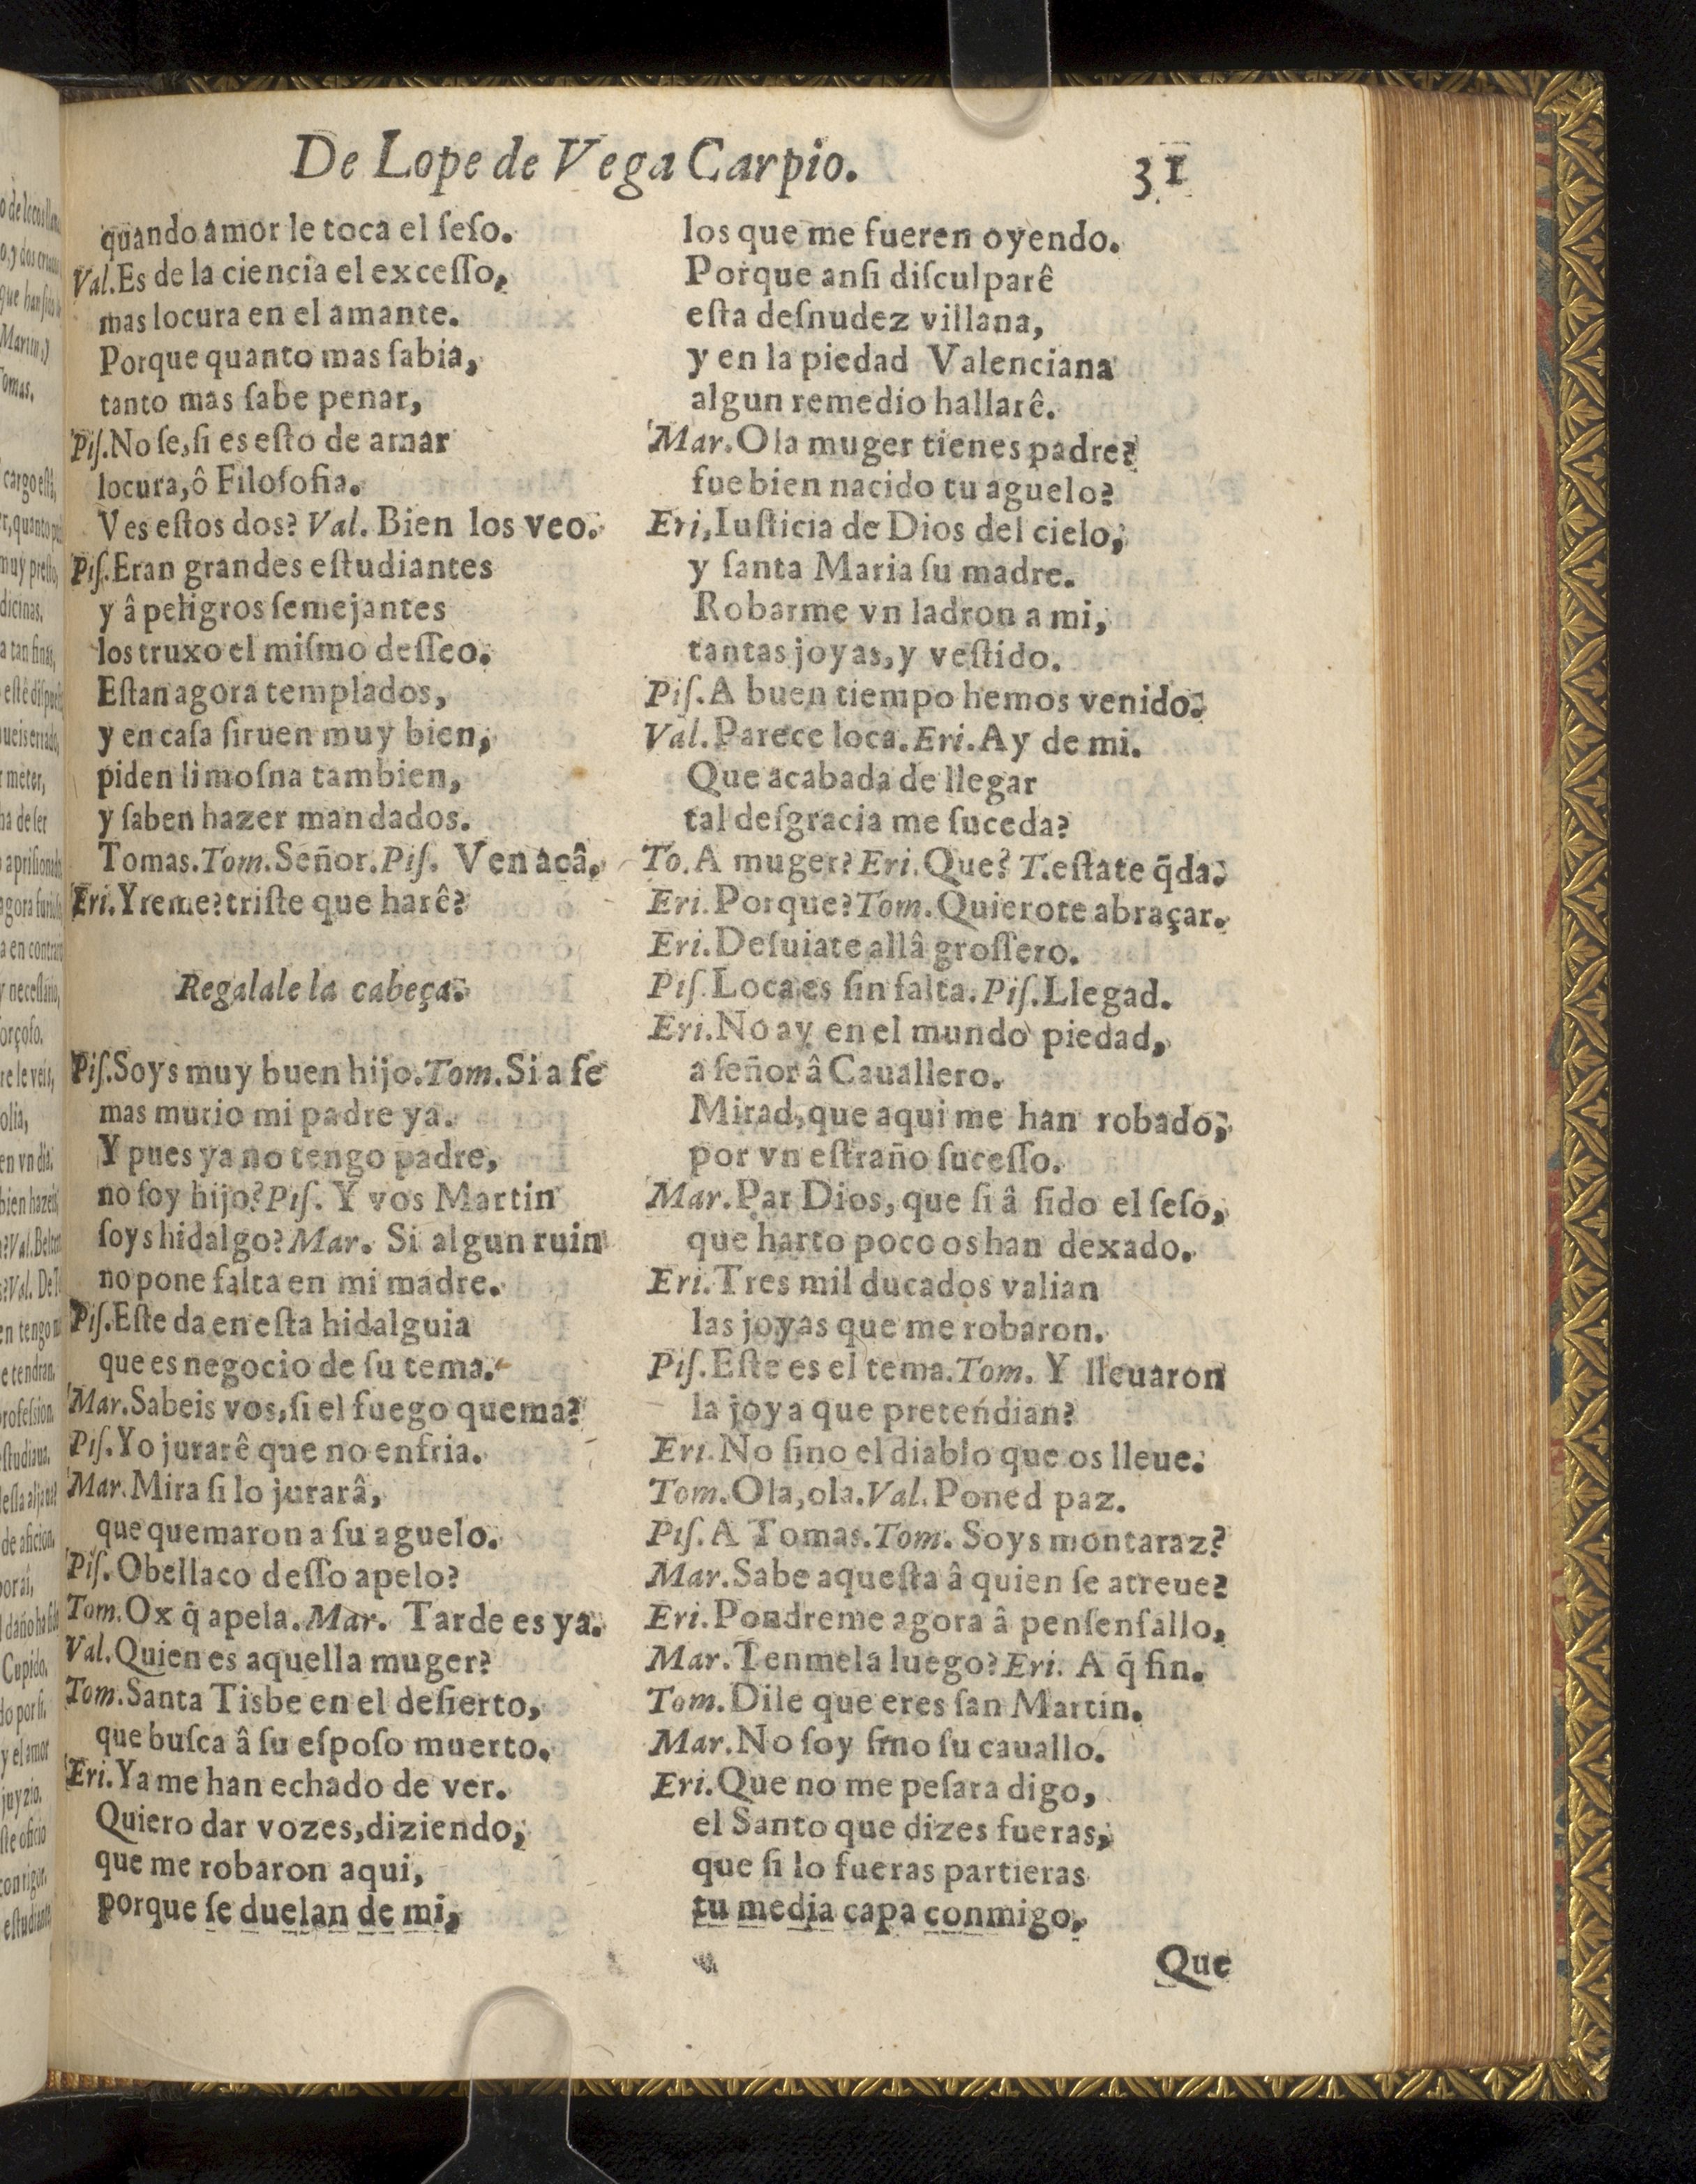 De Lope de Vega Carpio. 31
quando amor le toca el ſeſo.
Val.Es de la ciencia el exceſſo,
mas locura en el amante.
Porque quanto mas ſabia,
tanto mas ſabe penar,
Piſ.No ſe,ſi es eſto de amar
locura,ô Filoſofia.
Ves eſtos dos? Val. Bien los veo.
Piſ.Eran grandes eſtudiantes
y â peligros ſemejantes
los truxo el miſmo deſſeo.
Eſtan agora templados,
y en caſa ſiruen muy bien,
piden limoſna tambien,
y ſaben hazer mandados.
Tomas.Tom.Señor.Piſ. Ven acâ.
Eri.Yreme?triſte que harê?
Regalale la cabeça.
Piſ.Soys muy buen hijo.Tom.Si a fe
mas murio mi padre ya.
Y pues ya no tengo padre,
no ſoy hijo?Piſ. Y vos Martin
ſoys hidalgo?Mar. Si algun ruin
no pone falta en mi madre.
Piſ.Eſte da en eſta hidalguia
que es negocio de ſu tema.
Mar.Sabeis vos,ſi el fuego quema?
Piſ.Yo jurarê que no enfria.
Mar.Mira ſi lo jurarâ,
que quemaron a ſu aguelo.
Piſ.O bellaco deſſo apelo?
Tom.Ox q̃ apela.Mar. Tarde es ya.
Val.Quien es aquella muger?
Tom.Santa Tisbe en el deſierto,
que buſca â ſu eſpoſo muerto.
Eri.Ya me han echado de ver.
Quiero dar vozes,diziendo,
que me robaron aqui,
porque ſe duelan de mi,
los que me fueren oyendo.
Porque anſi diſculparê
eſta deſnudez villana,
y en la piedad Valenciana
algun remedio hallarê.
Mar.Ola muger tienes padre?
fue bien nacido tu aguelo?
Eri,Iuſticia de Dios del cielo,
y ſanta Maria ſu madre.
Robarme vn ladron a mi,
tantas joyas,y veſtido.
Piſ.A buen tiempo hemos venido.
Val.Parece loca.Eri.Ay de mi.
Que acabada de llegar
tal deſgracia me ſuceda?
To.A muger?Eri.Que? T.eſtate q̃da.
Eri.Porque?Tom.Quierote abraçar.
Eri.Deſuiate allâ groſſero.
Piſ.Loca es ſin falta.Piſ.Llegad.
Eri.No ay en el mundo piedad,
a ſeñor â Cauallero.
Mirad,que aqui me han robado,
por vn eſtraño ſuceſſo.
Mar.Par Dios, que ſi â ſido el ſeſo,
que harto poco os han dexado.
Eri.Tres mil ducados valian
las joyas que me robaron.
Piſ.Eſte es el tema.Tom. Y lleuaron
la joya que pretendian?
Eri.No ſino el diablo que os lleue.
Tom.Ola,ola.Val.Poned paz.
Piſ.A Tomas.Tom. Soys montaraz?
Mar.Sabe aqueſta â quien ſe atreue?
Eri.Pondreme agora â penſenſallo,
Mar.Tenmela luego?Eri. A q̃ fin.
Tom.Dile que eres ſan Martin.
Mar.No ſoy ſino ſu cauallo.
Eri.Que no me peſara digo,
el Santo que dizes fueras,
que ſi lo fueras partieras
tu media capa conmigo.
Que